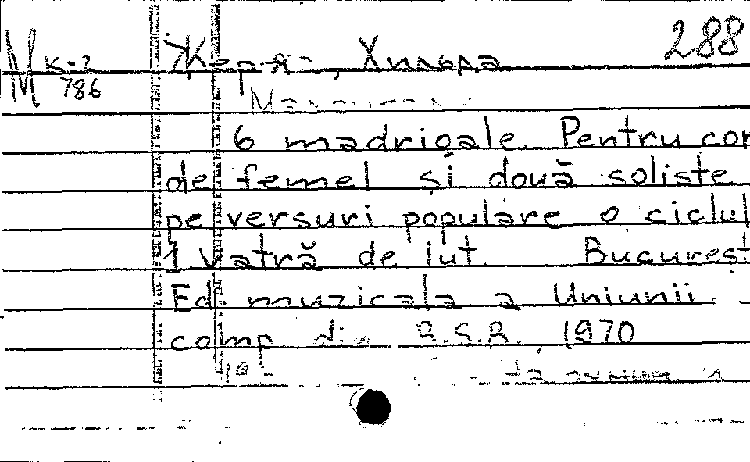 288
М К-7 Жеря, Хильда
786
6 madrigale. Pentru cor
de femel şi două soliste
pe versuri populare o ciclul
1 Vatră de lut. Bucureşt
Ed. muzicala a Uniunii
comp din R.S.R. 1970